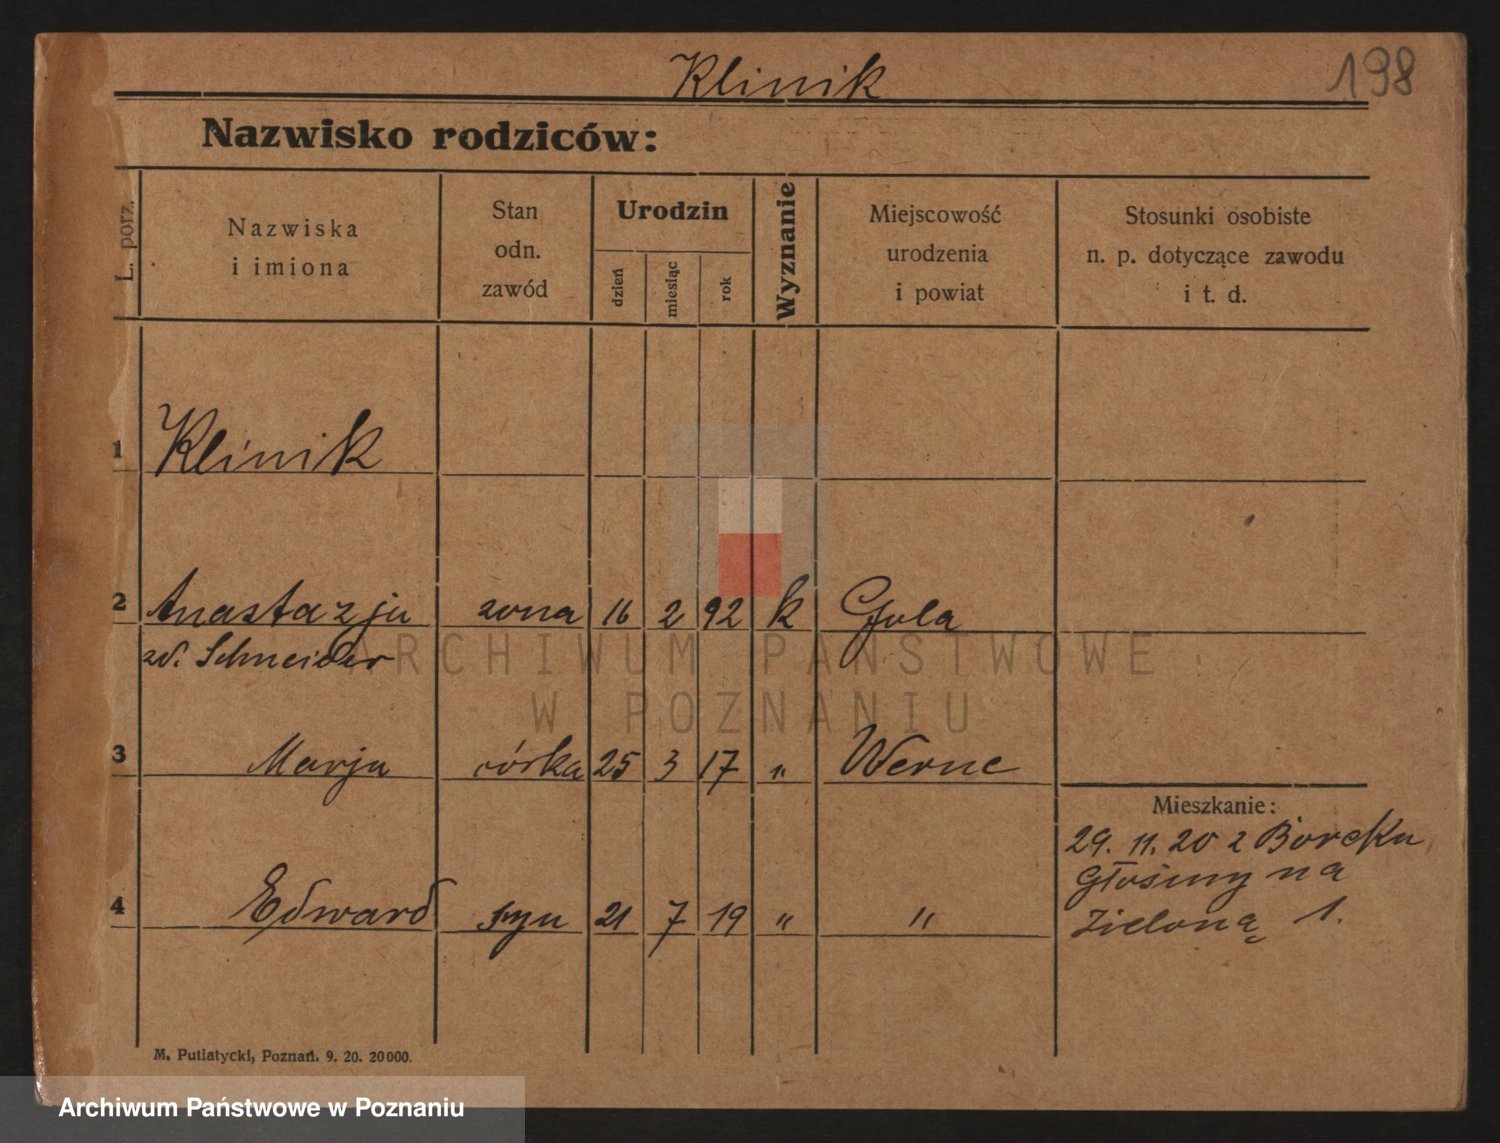 Klinik 198
Nazwisko rodziców:
L. porz.
Nazwiska
i imiona
Stan
odn.
zawód
Urodzin
dzień
miesiąc
rok
Wyznanie
Miejscowość
urodzenia
i powiat
Stosunki osobiste
n. p. dotyczące zawodu
i t. d.
1 Klinik
2 Anastazja zona 16 2 92 k Gola
zd. Schneider
ARCHIWUM PAŃSTWOWE
W POZNANIU
3 Marja córka 25 3 17 " Werne
Mieszkanie:
29. 11. 20 z Borcku
na
4 Edward syn 21 7 19 " "
Zieloną 1.
M. Putiatycki, Poznań. 9. 20. 20000.
Archiwum Państwowe w Poznaniu